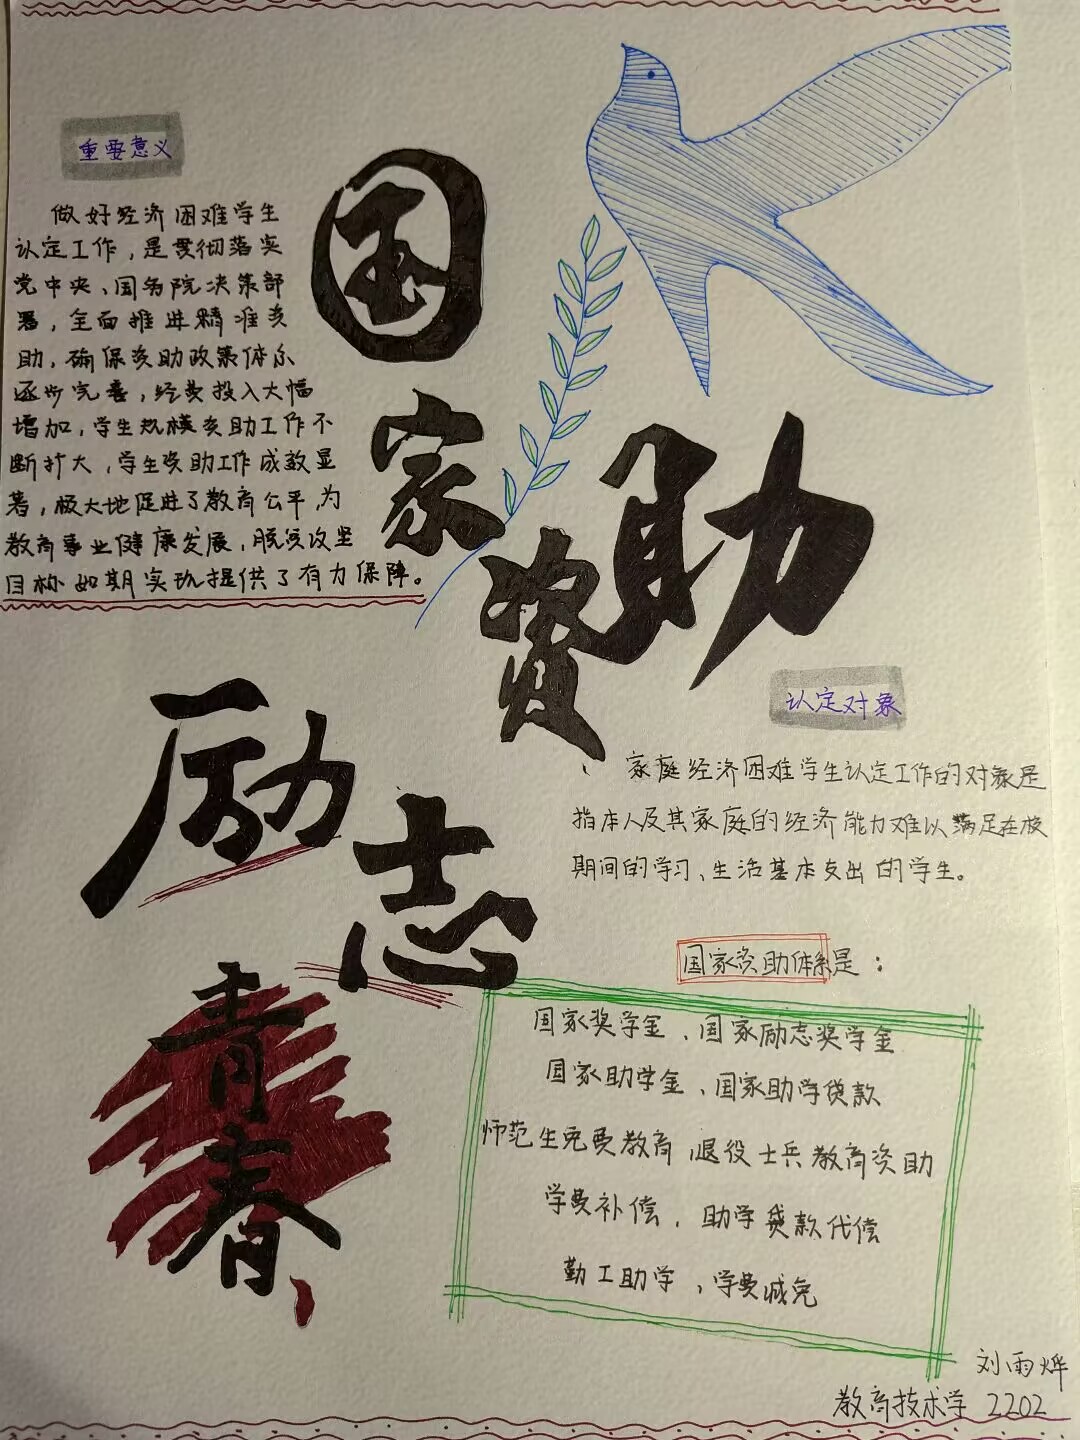 重要意义
做好经济困难学生
认定工作，是贯彻落实
党中央、国务院决策部
署，全面推进精准资
助，确保资助政策体系
逐步完善，经费投入大幅
增加，学生规模资助工作不
断扩大，学生资助工作成效显
著，极大地促进了教育公平，为
教育事业健康发展，脱贫攻坚
目标如期实现提供了有力保障。
国家资助
励志
青春
认定对象
家庭经济困难学生认定工作的对象是
指本人及其家庭的经济能力难以满足在校
期间的学习、生活基本支出的学生。
国家资助体系是：
国家奖学金、国家励志奖学金
国家助学金、国家助学贷款
师范生免费教育，退役士兵教育资助
学费补偿，助学贷款代偿
勤工助学，学费减免
刘雨烨
教育技术学 2202